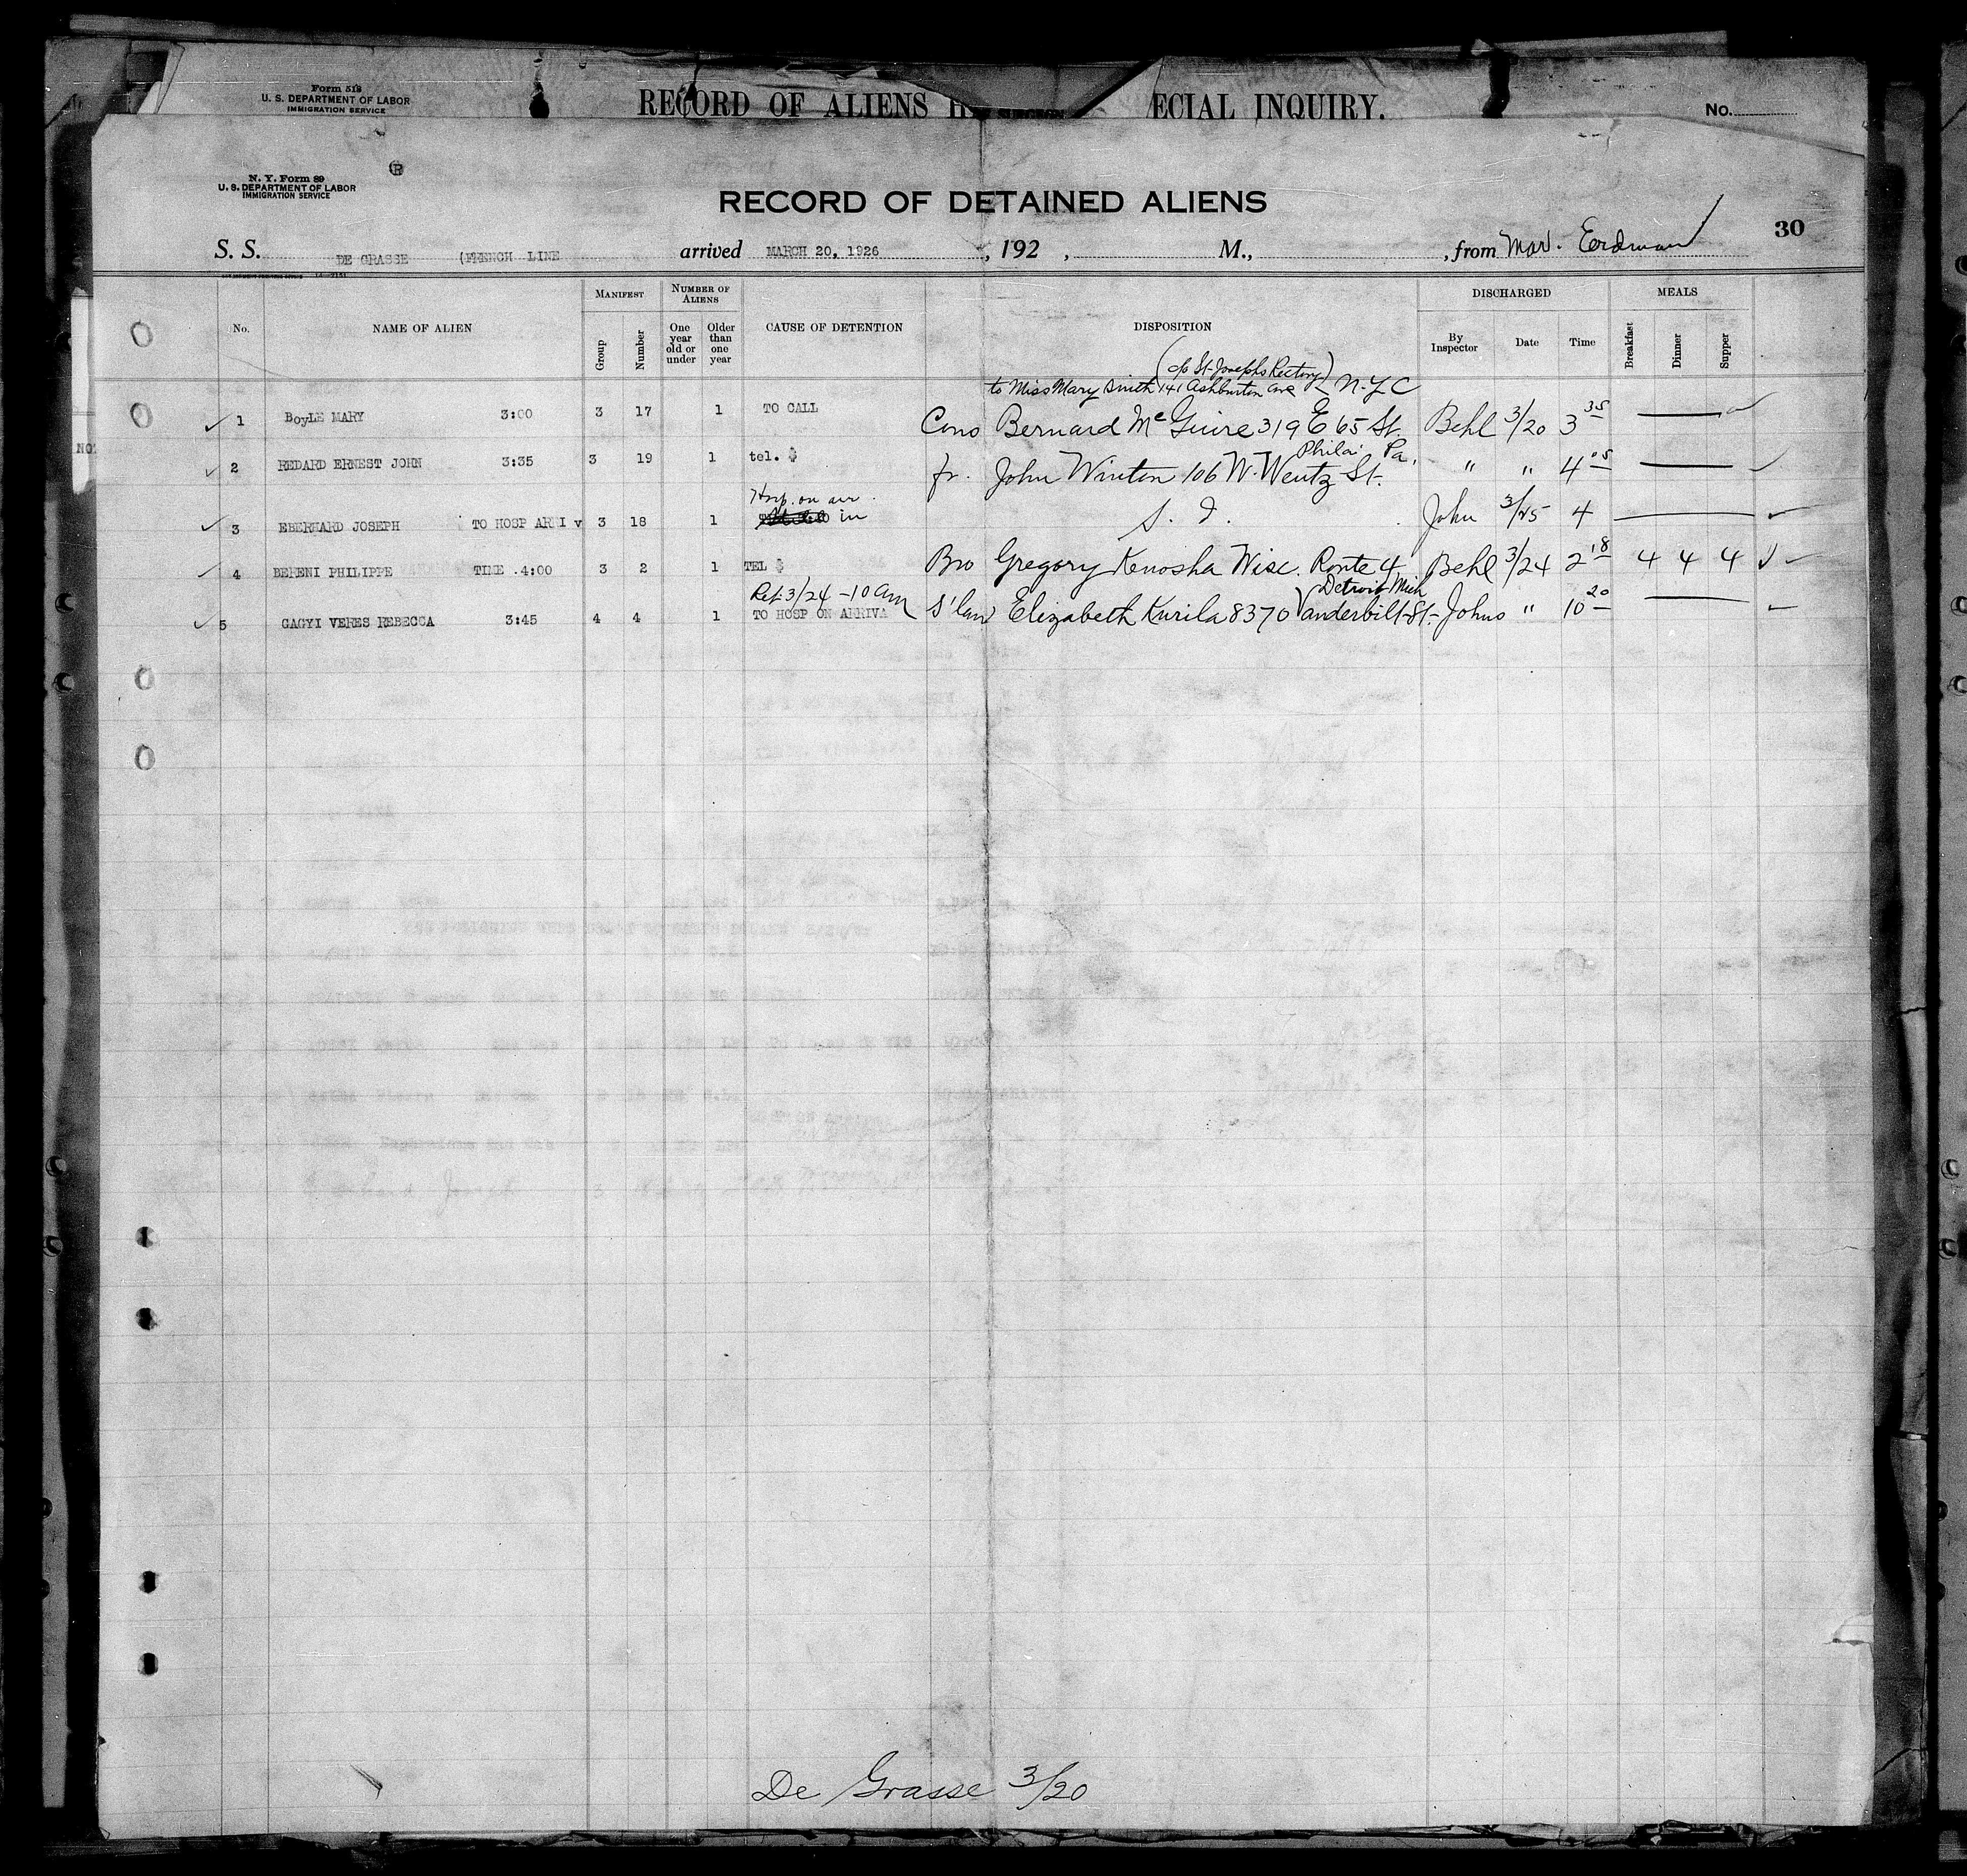 Form 518
U. S. DEPARTMENT OF LABOR
IMMIGRATION SERVICE
RECORD OF ALIENS H ECIAL INQUIRY.
No.
N. Y. Form 89
U. S. DEPARTMENT OF LABOR
IMMIGRATION SERVICE
RECORD OF DETAINED ALIENS
30
S. S. DE GRASSE (FRENCH LINE arrived MARCH 20, 1926 , 192 , M., , from Mar. Erdman
No. NAME OF ALIEN MANIFEST NUMBER OF ALIENS CAUSE OF DETENTION DISPOSITION DISCHARGED MEALS
Group Number One year old or under Older than one year By Inspector Date Time Breakfast Dinner Supper
(c/o St. Josephs Rectory)
to Miss Mary Smith 141 Ashburton ave N.Y.C
1 BoyLE MARY 3:00 3 17 1 TO CALL Cons Bernard McGuire 319 E 65 St. Behl 3/20 3 35
Phila Pa.
2 REDARD ERNEST JOHN 3:35 3 19 1 tel. $ fr. John Winton 106 W. Wentz St. " " 4 05
Hosp. on arr.
3 EBERHARD JOSEPH TO HOSP ARRI v 3 18 1 in S. I. John 3/25 4
4 BERENI PHILIPPE TIME .4:00 3 2 1 TEL $ Bro Gregory Kenosha Wisc. Route 4 Behl 3/24 2 18 4 4 4
Ret 3/24 - 10 am Detroit Mich
5 GAGYI VERES REBECCA 3:45 4 4 1 TO HOSP ON ARRIVA S'law Elizabeth Kurila 8370 Vanderbilt St. Johns " 10 20
De Grasse 3/20